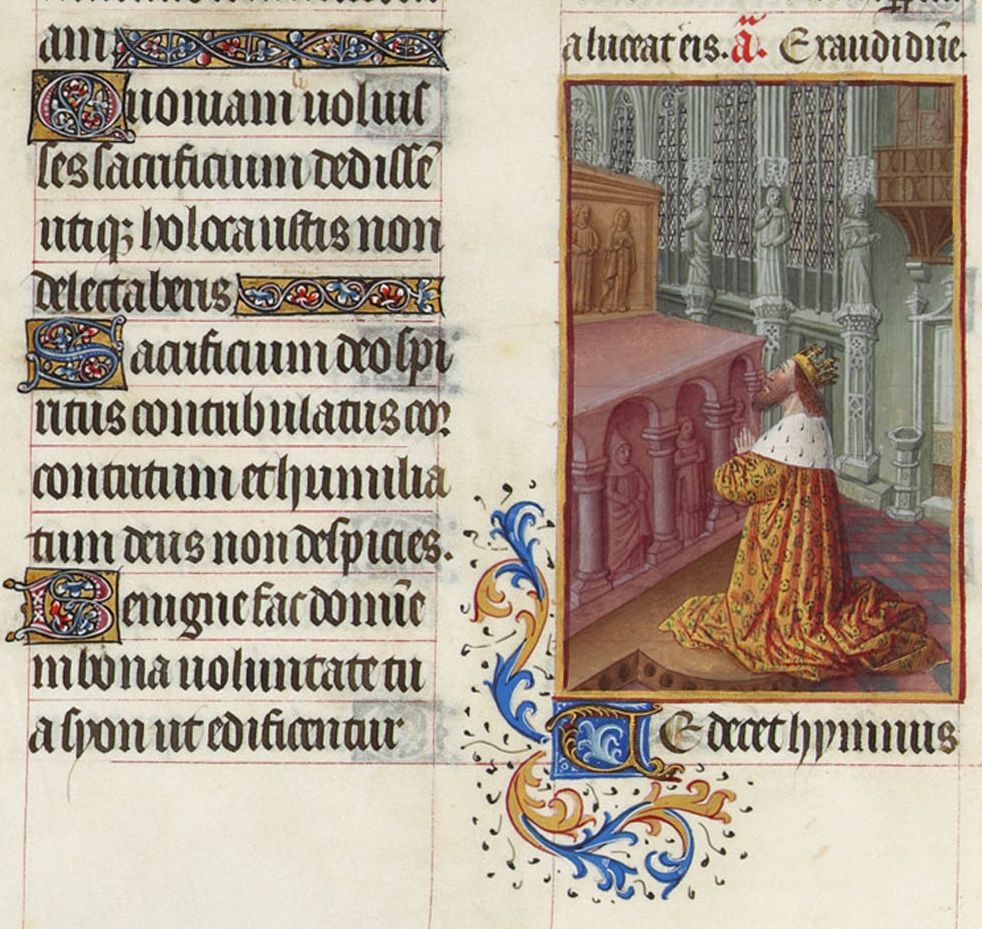 am
Quoniam voluis
ses sacrificium dedissē
utiqꝫ holocaustis non
delectaberis
Sacrificium deo spi
ritus contribulatus cor
contritum et humilia
tum deus non despicies.
Benigne fac domine
in bona voluntate tu
a syon ut edificentur
a luceat eis. a. Exaudi dn̄e.
TE decet hymnus